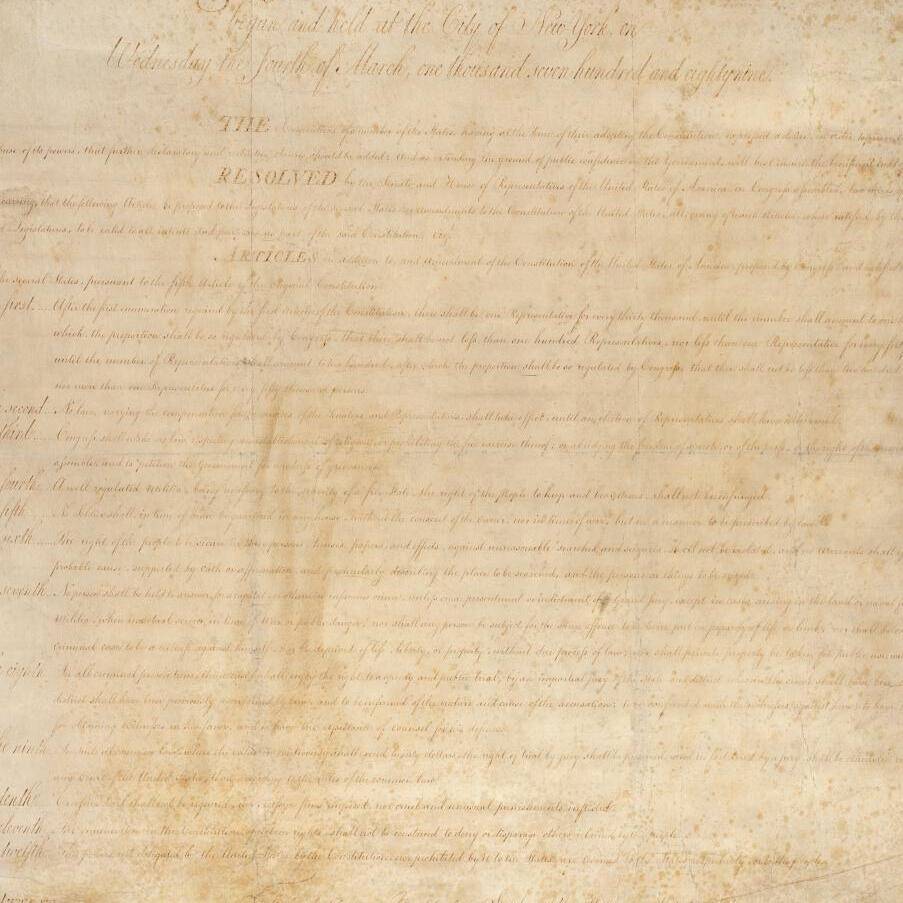 begun and held at the City of New York, on
Wednesday the Fourth of March, one thousand seven hundred and eighty nine.
THE Conventions of a number of the States, having at the time of their adopting the Constitution, expressed a desire, in order to prevent
use of its powers, that further declaratory and restrictive clauses should be added: And as extending the ground of public confidence in the Government, will best ensure the beneficent ends
RESOLVED by the Senate and House of Representatives of the United States of America, in Congress assembled, two thirds of
concurring, that the following Articles be proposed to the Legislatures of the several States, as amendments to the Constitution of the United States, all, or any of which Articles, when ratified by three
said Legislatures, to be valid to all intents and purposes, as part of the said Constitution; viz.
ARTICLES in addition to, and Amendment of the Constitution of the United States of America, proposed by Congress, and ratified
the several States, pursuant to the fifth Article of the original Constitution.
first.... After the first enumeration required by the first Article of the Constitution, there shall be one Representative for every thirty thousand, until the number shall amount to one
which, the proportion shall be so regulated by Congress, that there shall be not less than one hundred Representatives, nor less than one Representative for every forty
until the number of Representatives shall amount to two hundred, after which the proportion shall be so regulated by Congress, that there shall not be less than two hundred
nor more than one Representative for every fifty thousand persons.
second.. No law, varying the compensation for the services of the Senators and Representatives, shall take effect, until an election of Representatives shall have intervened.
third.... Congress shall make no law respecting an establishment of religion, or prohibiting the free exercise thereof; or abridging the freedom of speech, or of the press; or the right of the people
assemble, and to petition the Government for a redress of grievances.
fourth. A well regulated Militia, being necessary to the security of a free State, the right of the people to keep and bear Arms, shall not be infringed.
fifth. No Soldier shall, in time of peace be quartered in any house, without the consent of the owner, nor in time of war, but in a manner to be prescribed by law.
sixth..... The right of the people to be secure in their persons, houses, papers, and effects, against unreasonable searches and seizures, shall not be violated, and no warrants shall
probable cause, supported by oath or affirmation, and particularly describing the place to be searched, and the persons or things to be seized.
seventh. No person shall be held to answer for a capital, or otherwise infamous crime, unless on a presentment or indictment of a Grand Jury, except in cases arising in the land or naval
Militia, when in actual service in time of War or public danger; nor shall any person be subject for the same offence to be twice put in jeopardy of life or limb; nor shall be
criminal case to be a witness against himself, nor be deprived of life, liberty, or property, without due process of law; nor shall private property be taken for public use
eighth. In all criminal prosecutions, the accused shall enjoy the right to a speedy and public trial, by an impartial jury of the State and district wherein the crime shall have been
district shall have been previously ascertained by law, and to be informed of the nature and cause of the accusation; to be confronted with the witnesses against him; to have
for obtaining witnesses in his favor, and to have the assistance of counsel for his defence.
the ninth. In suits at common law, where the value in controversy shall exceed twenty dollars, the right of trial by jury shall be preserved, and no fact tried by a jury, shall be otherwise
any Court of the United States, than according to the rules of the common law.
tenth. Excessive bail shall not be required, nor excessive fines imposed, nor cruel and unusual punishments inflicted.
eleventh. The enumeration in the Constitution, of certain rights, shall not be construed to deny or disparage others retained by the people.
twelfth. The powers not delegated to the United States by the Constitution, nor prohibited by it to the States, are reserved to the States respectively, or to the people.